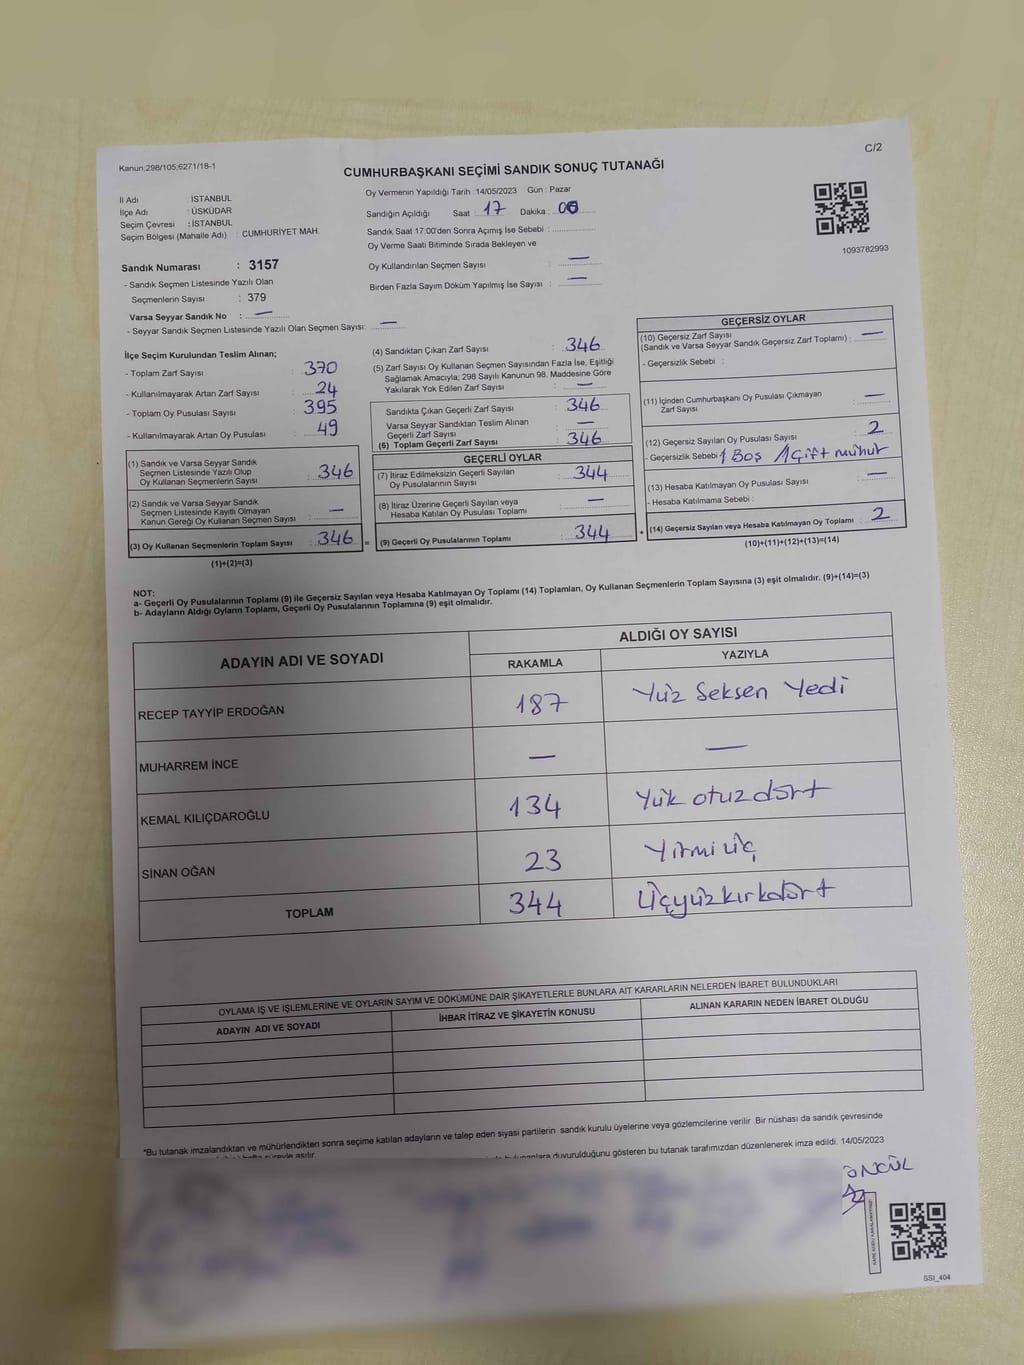 Kanun;298/105;6271/18-1
C/2
CUMHURBAŞKANI SEÇİMİ SANDIK SONUÇ TUTANAĞI
İl Adı : İSTANBUL
İlçe Adı : ÜSKÜDAR
Seçim Çevresi : İSTANBUL
Seçim Bölgesi (Mahalle Adı) : CUMHURİYET MAH.
Sandık Numarası : 3157
- Sandık Seçmen Listesinde Yazılı Olan
Seçmenlerin Sayısı : 379
Varsa Seyyar Sandık No : —
- Seyyar Sandık Seçmen Listesinde Yazılı Olan Seçmen Sayısı: —
Oy Vermenin Yapıldığı Tarih : 14/05/2023 Gün : Pazar
Sandığın Açıldığı Saat : 17 Dakika : 06
Sandık Saat 17:00'den Sonra Açımış İse Sebebi :
Oy Verme Saati Bitiminde Sırada Bekleyen ve
Oy Kullandırılan Seçmen Sayısı : —
Birden Fazla Sayım Döküm Yapılmış İse Sayısı : —
1093782993
İlçe Seçim Kurulundan Teslim Alınan;
- Toplam Zarf Sayısı : 370
- Kullanılmayarak Artan Zarf Sayısı : 24
- Toplam Oy Pusulası Sayısı : 395
- Kullanılmayarak Artan Oy Pusulası : 49
(1) Sandık ve Varsa Seyyar Sandık
Seçmen Listesinde Yazılı Olup
Oy Kullanan Seçmenlerin Sayısı : 346
(2) Sandık ve Varsa Seyyar Sandık
Seçmen Listesinde Kayıtlı Olmayan
Kanun Gereği Oy Kullanan Seçmen Sayısı : —
(3) Oy Kullanan Seçmenlerin Toplam Sayısı : 346 =
(1)+(2)=(3)
(4) Sandıktan Çıkan Zarf Sayısı : 346
(5) Zarf Sayısı Oy Kullanan Seçmen Sayısından Fazla İse, Eşitliği
Sağlamak Amacıyla; 298 Sayılı Kanunun 98. Maddesine Göre
Yakılarak Yok Edilen Zarf Sayısı : —
Sandıkta Çıkan Geçerli Zarf Sayısı : 346
Varsa Seyyar Sandıktan Teslim Alınan
Geçerli Zarf Sayısı : —
(6) Toplam Geçerli Zarf Sayısı : 346
GEÇERLİ OYLAR
(7) İtiraz Edilmeksizin Geçerli Sayılan
Oy Pusulalarının Sayısı : 344
(8) İtiraz Üzerine Geçerli Sayılan veya
Hesaba Katılan Oy Pusulası Toplamı : —
(9) Geçerli Oy Pusulalarının Toplamı : 344 +
GEÇERSİZ OYLAR
(10) Geçersiz Zarf Sayısı
(Sandık ve Varsa Seyyar Sandık Geçersiz Zarf Toplamı) : —
- Geçersizlik Sebebi :
(11) İçinden Cumhurbaşkanı Oy Pusulası Çıkmayan
Zarf Sayısı : —
(12) Geçersiz Sayılan Oy Pusulası Sayısı : 2
- Geçersizlik Sebebi : 1 Boş 1 Çift mühür
(13) Hesaba Katılmayan Oy Pusulası Sayısı : —
- Hesaba Katılmama Sebebi :
(14) Geçersiz Sayılan veya Hesaba Katılmayan Oy Toplamı : 2
(10)+(11)+(12)+(13)=(14)
NOT:
a- Geçerli Oy Pusulalarının Toplamı (9) ile Geçersiz Sayılan veya Hesaba Katılmayan Oy Toplamı (14) Toplamları, Oy Kullanan Seçmenlerin Toplam Sayısına (3) eşit olmalıdır. (9)+(14)=(3)
b- Adayların Aldığı Oyların Toplamı, Geçerli Oy Pusulalarının Toplamına (9) eşit olmalıdır.
ADAYIN ADI VE SOYADI
ALDIĞI OY SAYISI
RAKAMLA YAZIYLA
RECEP TAYYİP ERDOĞAN 187 Yüz Seksen Yedi
MUHARREM İNCE — —
KEMAL KILIÇDAROĞLU 134 Yük otuzdört
SİNAN OĞAN 23 Yirmiüç
TOPLAM 344 Üçyüzkırkdört
OYLAMA İŞ VE İŞLEMLERİNE VE OYLARIN SAYIM VE DÖKÜMÜNE DAİR ŞİKAYETLERLE BUNLARA AİT KARARLARIN NELERDEN İBARET BULUNDUKLARI
ADAYIN ADI VE SOYADI İHBAR İTİRAZ VE ŞİKAYETİN KONUSU ALINAN KARARIN NEDEN İBARET OLDUĞU
*Bu tutanak imzalandıktan ve mühürlendikten sonra seçime katılan adayların ve talep eden siyasi partilerin sandık kurulu üyelerine veya gözlemcilerine verilir .Bir nüshası da sandık çevresinde
hafta süreyle asılır. duyurulduğunu gösteren bu tutanak tarafımızdan düzenlenerek imza edildi. 14/05/2023
ÖNCÜL
SSI_404